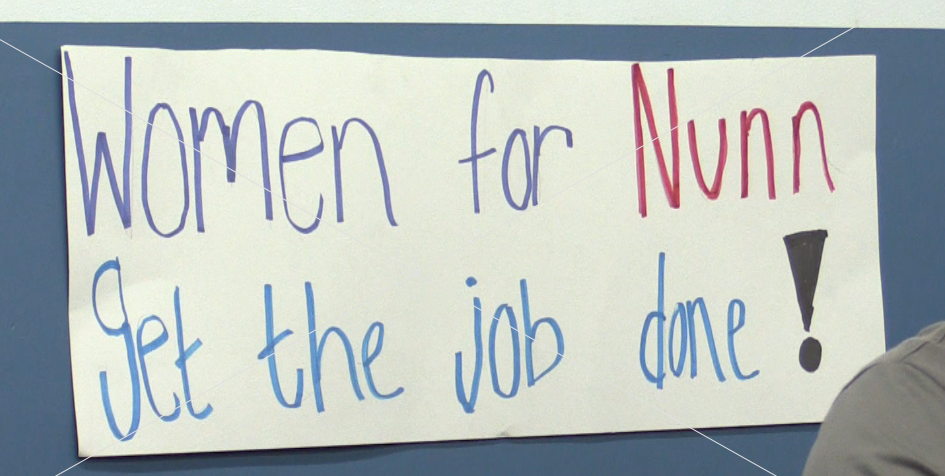 Women for Nunn
get the job done!